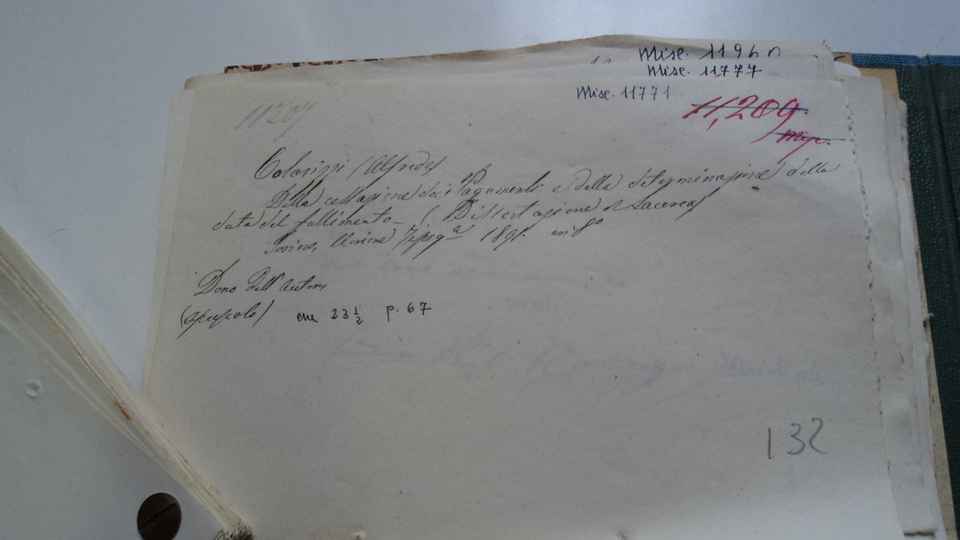 Misc. 11960
Misc. 11777
Misc. 11771
11,209
Misc.
11209
(Alfredo)
Della cessazione dei Pagamenti e della determinazione della
data del fallimento _ (Dissertazione di Laurea)
Torino, Unione Tipog.ª 1891. in 8º
Dono dell'autore
(opuscolo) cm 23 ½ p. 67
132